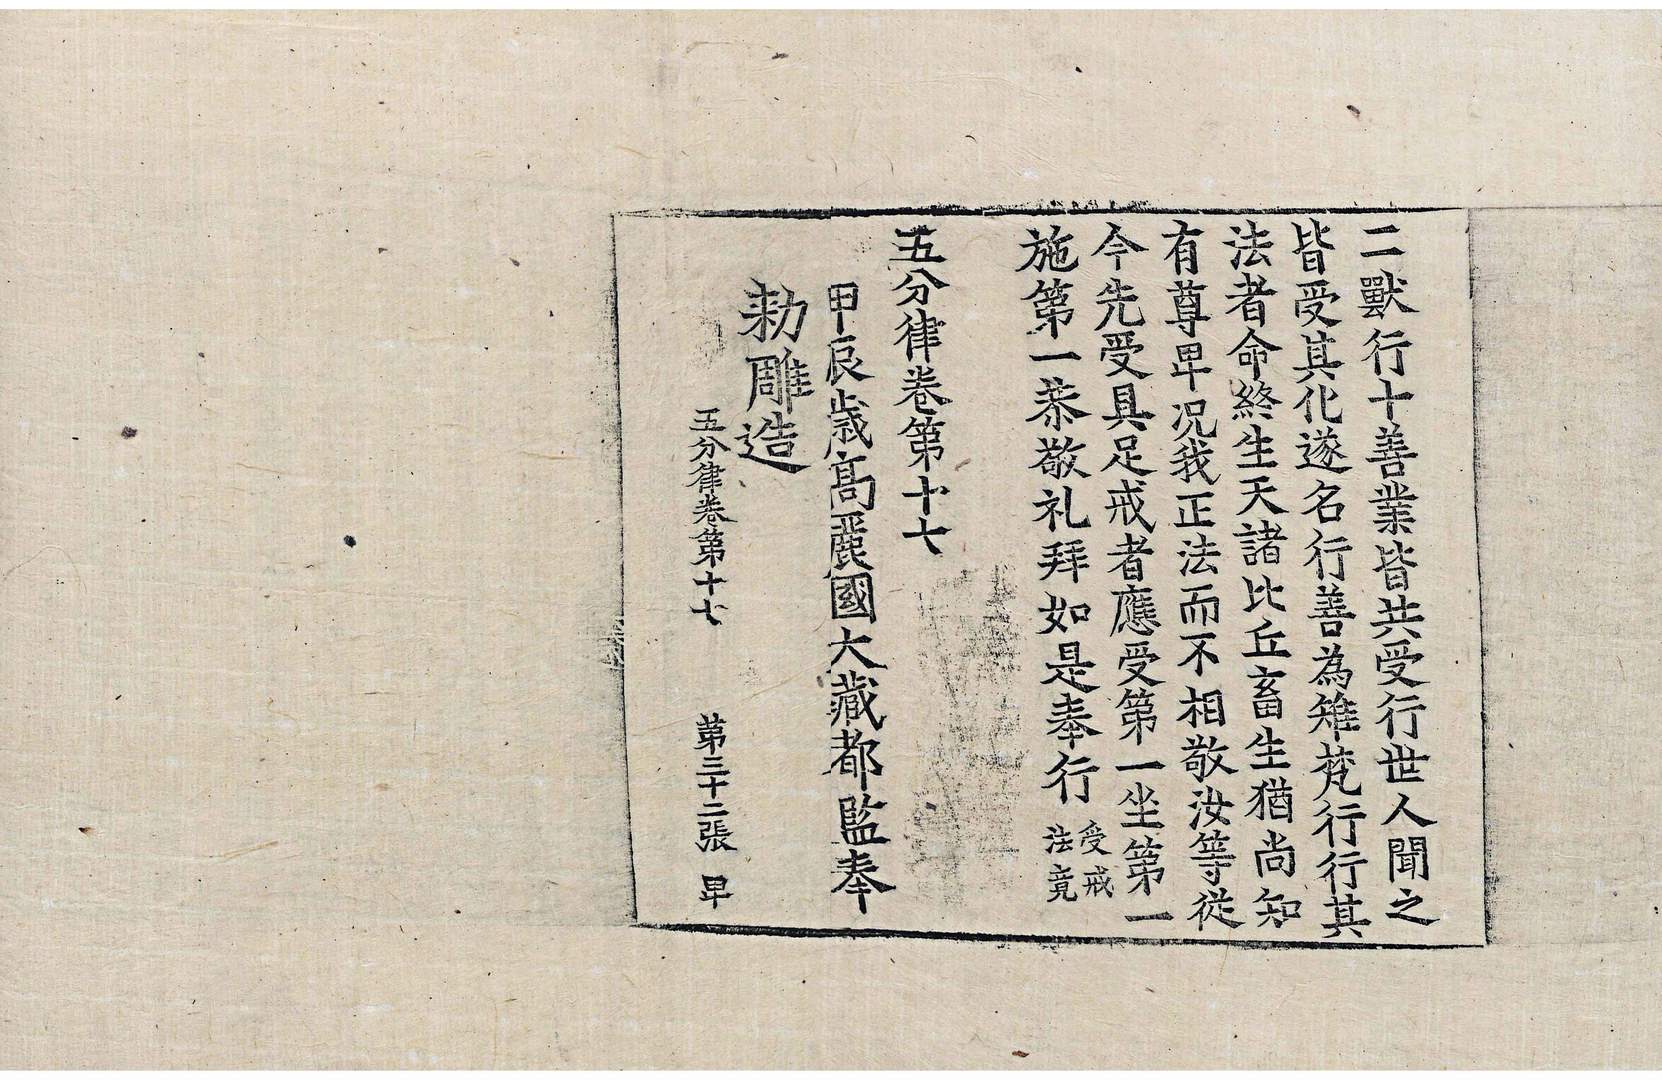 二獸行十善業皆共受行世人聞之
皆受其化遂名行善為雉梵行行其
法者命終生天諸比丘畜生猶尚知
有尊卑況我正法而不相敬汝等從
今先受具足戒者應受第一坐第一
施第一恭敬礼拜如是奉行受戒法竟
五分律卷第十七
甲辰歳高麗國大藏都監奉
勑雕造
五分律卷第十七 第三十二張 卑